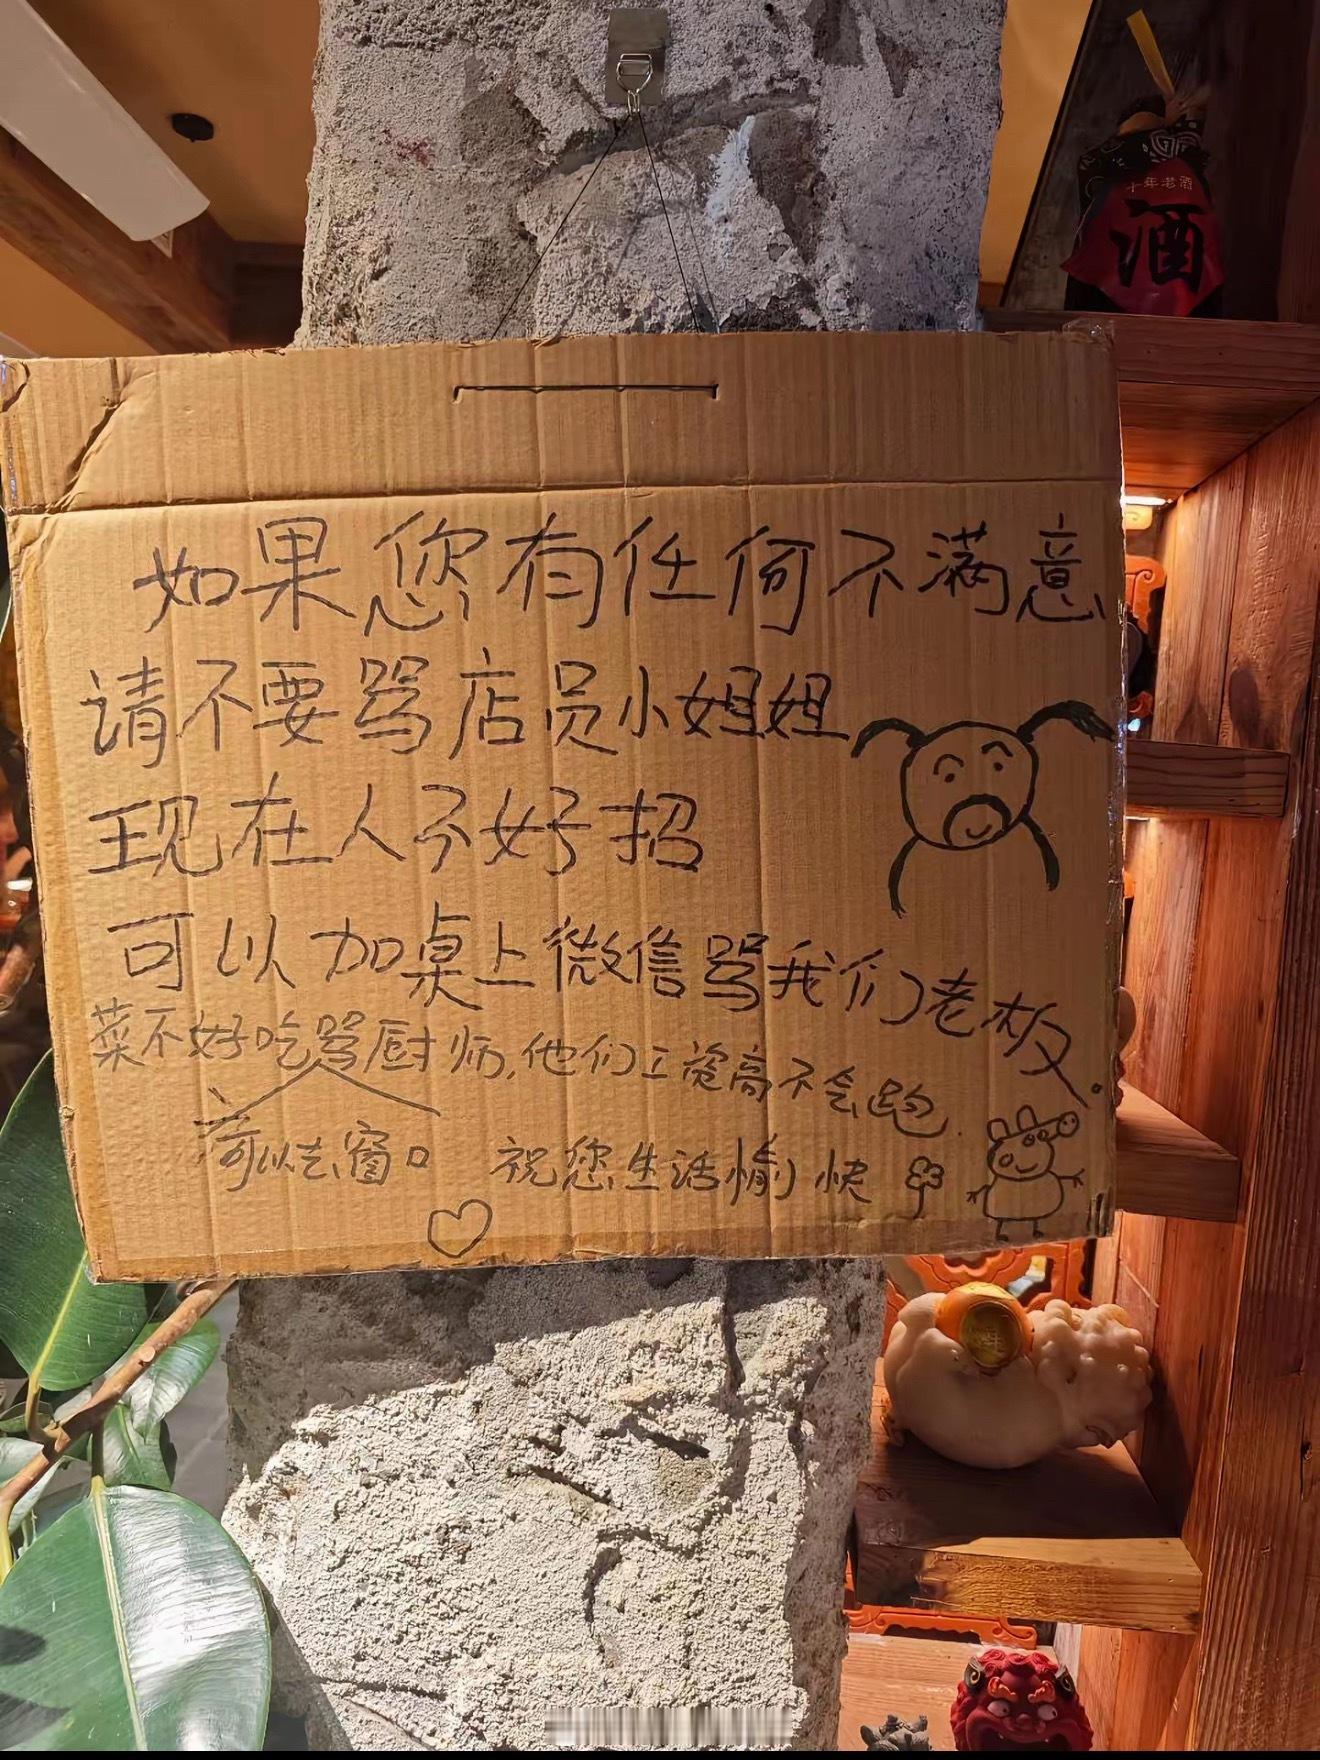 十年老酒
酒
如果您有任何不满意
请不要骂店员小姐姐
现在人不好招
可以加桌上微信骂我们老板.
菜不好吃骂厨师,他们工资高不会跑.
可以去窗口
祝您生活愉快